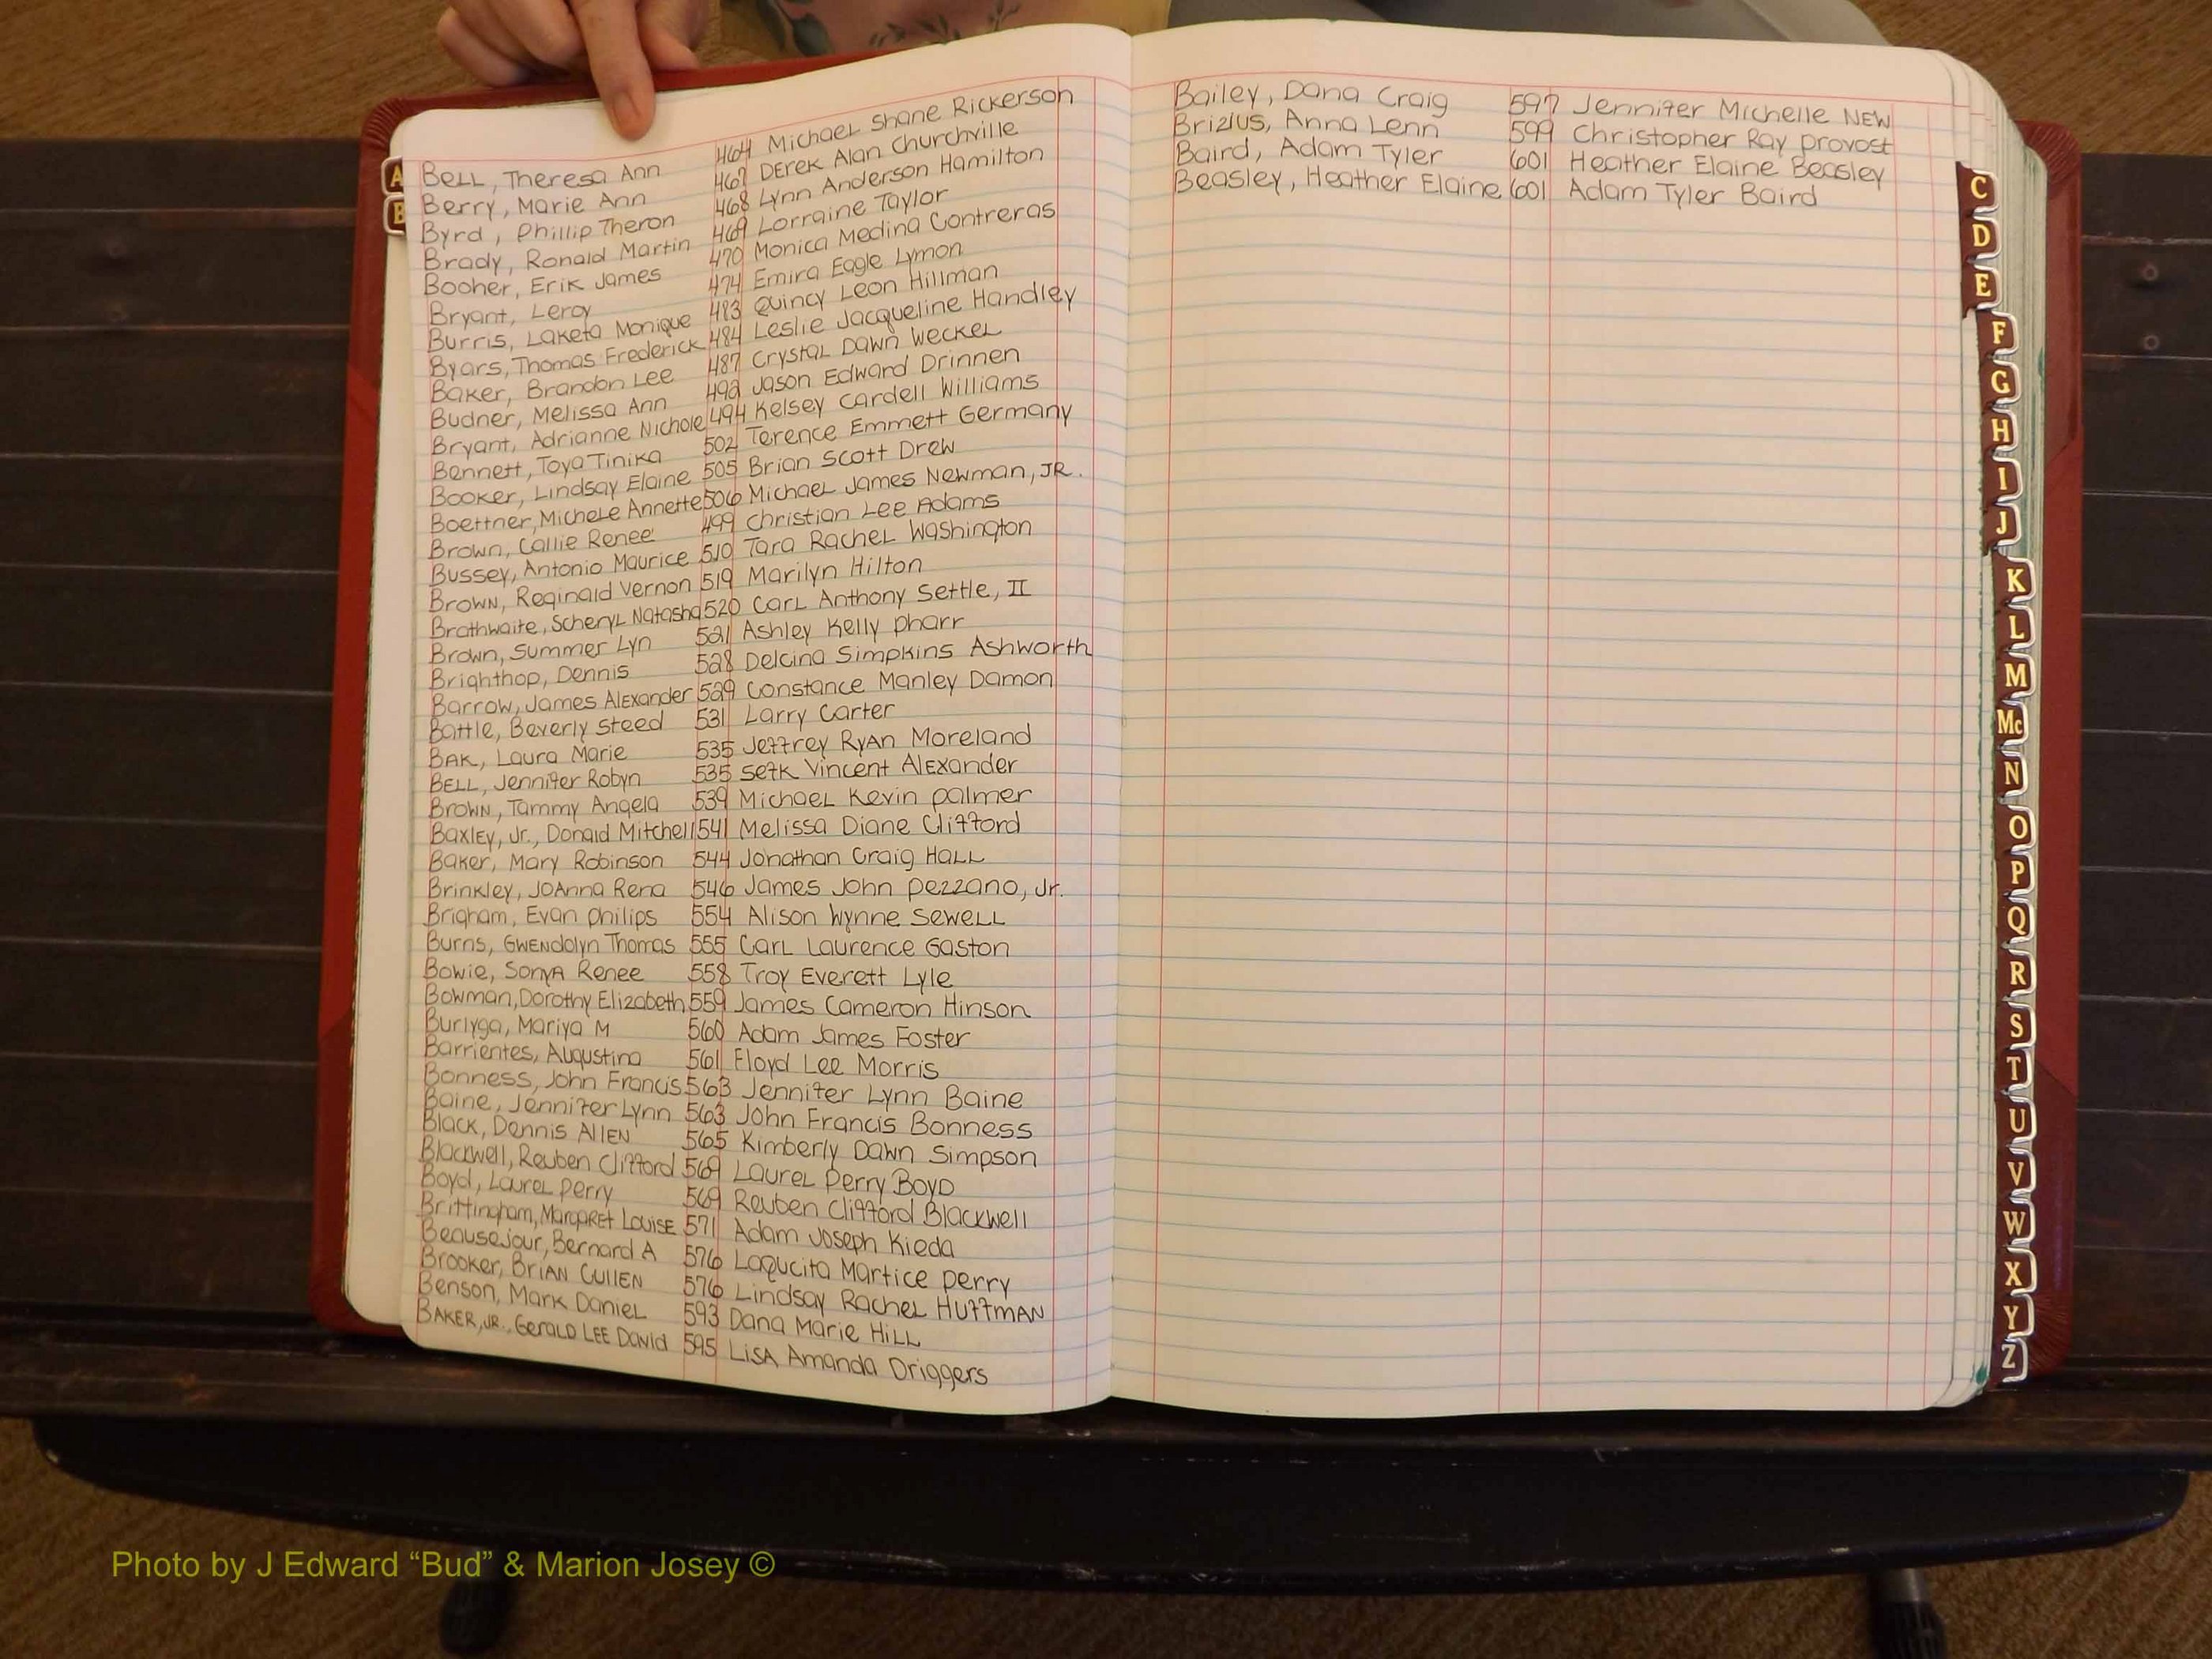 Bell, Theresa Ann 464 Michael Shane Rickerson
Berry, Marie Ann 467 Derek Alan Churchville
Byrd, Phillip Theron 468 Lynn Anderson Hamilton
Brady, Ronald Martin 469 Lorraine Taylor
Booher, Erik James 470 Monica Medina Contreras
Bryant, Leroy 474 Emira Eagle Lymon
Burris, Laketa Monique 483 Quincy Leon Hillman
Byars, Thomas Frederick 484 Leslie Jacqueline Handley
Baker, Brandon Lee 487 Crystal Dawn Weckel
Budner, Melissa Ann 492 Jason Edward Drinnen
Bryant, Adrianne Nichole 494 Kelsey Cardell Williams
Bennett, Toya Tinika 502 Terence Emmett Germany
Booker, Lindsay Elaine 505 Brian Scott Drew
Boettner, Michele Annette 506 Michael James Newman, JR.
Brown, Callie Renee' 499 Christian Lee Adams
Bussey, Antonio Maurice 510 Tara Rachel Washington
Brown, Reginald Vernon 519 Marilyn Hilton
Brathwaite, Scheryl Natasha 520 Carl Anthony Settle, II
Brown, Summer Lyn 521 Ashley Kelly Pharr
Brighthop, Dennis 528 Delcina Simpkins Ashworth
Barrow, James Alexander 529 Constance Manley Damon
Battle, Beverly Steed 531 Larry Carter
Bak, Laura Marie 535 Jeffrey Ryan Moreland
Bell, Jennifer Robyn 535 Vincent Alexander
Brown, Tammy Angela 539 Michael Kevin Palmer
Baxley, Jr., Donald Mitchell 541 Melissa Diane Clifford
Baker, Mary Robinson 544 Jonathan Craig Hall
Brinkley, JoAnna Rena 546 James John Pezzano, Jr.
Brigham, Evan Philips 554 Alison Wynne Sewell
Burns, Gwendolyn Thomas 555 Carl Laurence Gaston
Bowie, Sonya Renee 558 Troy Everett Lyle
Bowman, Dorothy Elizabeth 559 James Cameron Hinson
Burlyga, Mariya M 560 Adam James Foster
Barrientes, Augustina 561 Floyd Lee Morris
Bonness, John Francis 563 Jennifer Lynn Baine
Baine, Jennifer Lynn 563 John Francis Bonness
Black, Dennis Allen 565 Kimberly Dawn Simpson
Blackwell, Reuben Clifford 569 Laurel Perry Boyd
Boyd, Laurel Perry 569 Reuben Clifford Blackwell
Brittingham, Margaret Louise 571 Adam Joseph Kieda
Beausejour, Bernard A 576 Laqucita Martice Perry
Brooker, Brian Cullen 576 Lindsay Rachel Huffman
Benson, Mark Daniel 593 Dana Marie Hill
Baker, Jr., Gerald Lee David 595 Lisa Amanda Driggers
Bailey, Dana Craig 597 Jennifer Michelle New
Brizius, Anna Lenn 599 Christopher Ray Provost
Baird, Adam Tyler 601 Heather Elaine Beasley
Beasley, Heather Elaine 601 Adam Tyler Baird
A
B
C
D
E
F
G
H
I
J
K
L
M
Mc
N
O
P
Q
R
S
T
U
V
W
X
Y
Z
Photo by J Edward “Bud” & Marion Josey ©